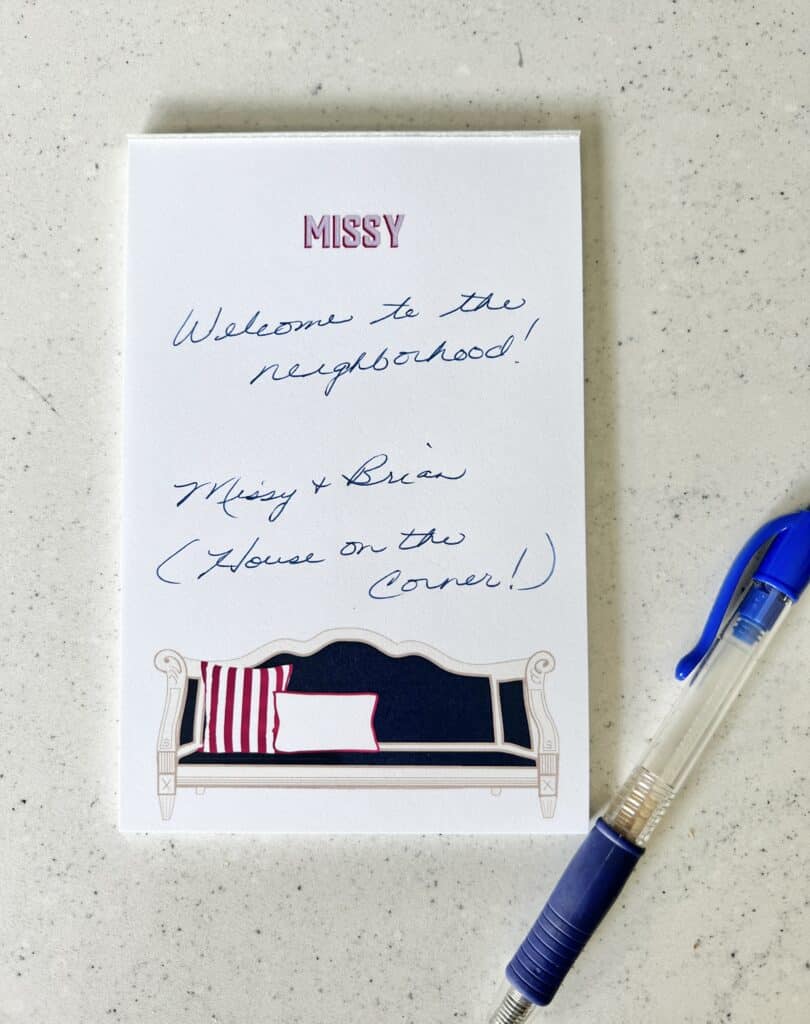 MISSY
Welcome to the
neighborhood!
Missy + Brian
(House on the
Corner!)